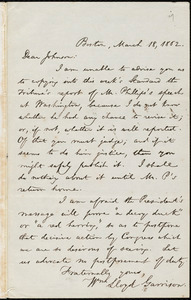 Boston, March 18, 1862.
Dear Johnson:
I am unable to advise you as
to copying into this week's Standard the
Tribune's report of Mr. Phillips's speech
at Washington, because I do not know
whether he had any chance to revise it;
or, if not, whether it is well reported.
Of that you must judge; and if it
seems to do him justice, then you
might safely publish it. I shall
do nothing about it until Mr. P's
return home.
I am afraid the President's
message will prove "a decoy duck"
or "a red herring," so as to postpone
that decisive action by Congress which
we are so desirous of seeing. Let
us advocate no postponement of duty.
Fraternally yours,
Wm Lloyd Garrison.